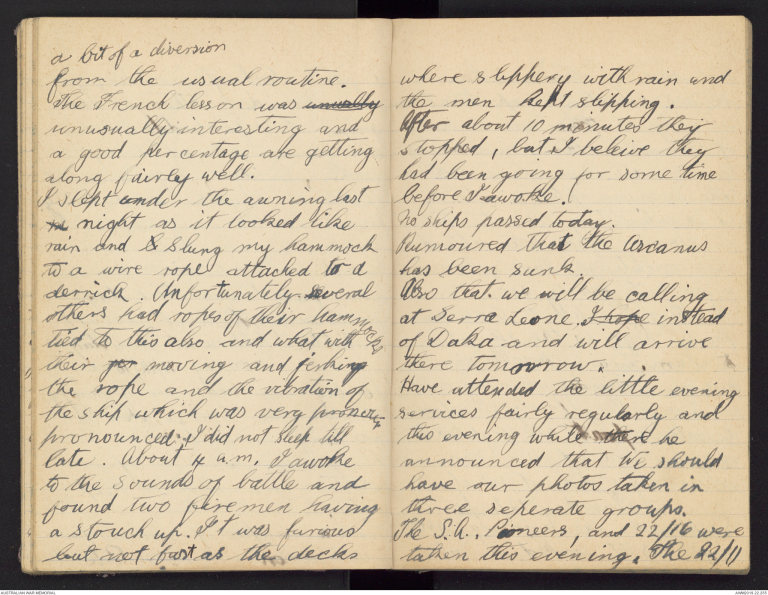 a bit of a diversion
from the usual routine.
The French lesson was unually
unusually interesting and
a good percentage are getting
along fairly well.
I slept under the awning last
night as it looked like
rain and & slung my hammock
to a wire rope attached to a
derrick. Unfortunately several
others had ropes of their hammocks
tied to this also and what with
their moving and jerking
the rope and the vibration of
the ship which was very pronoun
pronounced. I did not sleep till
late. About 4 a.m. I awoke
to the sounds of battle and
found two firemen having
a stouch up. It was furious
but not fast as the decks
where slippery with rain and
the men kept slipping.
After about 10 minutes they
stopped, but I beleive they
had been going for some time
before I awoke.
No ships passed today.
Rumoured that the Ascanus
has been sunk.
Also that we will be calling
at Serra Leone. I hope instead
of Daka and will arrive
there tomorrow.
Have attended the little evening
services fairly regularly and
this evening while there he
announced that we should
have our photos taken in
three seperate groups.
The S.A. Pioneers, and 22/16 were
taken this evening. The 22/11
AUSTRALIAN WAR MEMORIAL